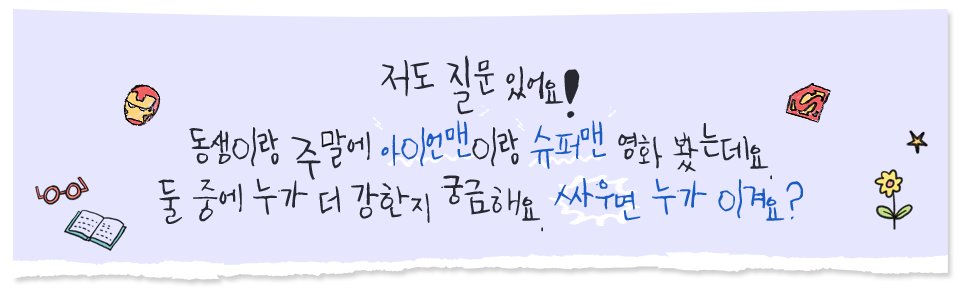 저도 질문 있어요!
동생이랑 주말에 아이언맨이랑 슈퍼맨 영화 봤는데요.
둘 중에 누가 더 강한지 궁금해요. 싸우면 누가 이겨요?